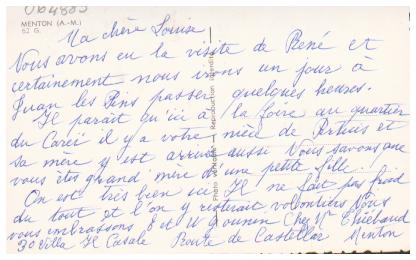 064885
MENTON (A.-M.)
62 G.
Ma chère Louise
Nous avons eu la visite de René et
certainement nous irons un jour à
Juan les Pins passer quelques heures.
Il paraît qu'ici à la foire au quartier
du Careï il y a votre nièce de Pertuis et
sa mère y est arrivée aussi Nous savons que
vous êtes grand'mère d'une petite fille.
On est très bien ici Il ne fait pas froid
du tout et l'on y resterait volontiers Nous
vous embrassons E et W Chez Mr Thiébaud
30 Villa Il Casale Route de Castellar Menton
Photo véritable - Reproduction interdite